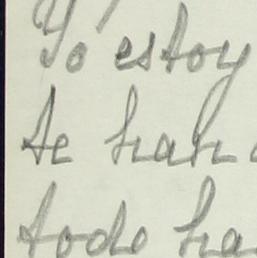 Yo estoy
te han
todo ha